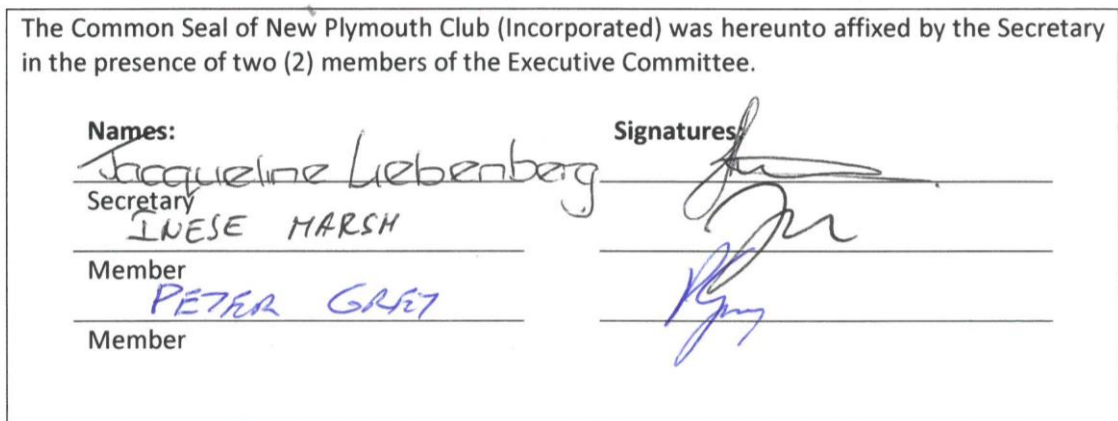 The Common Seal of New Plymouth Club (Incorporated) was hereunto affixed by the Secretary
in the presence of two (2) members of the Executive Committee.
Names: Signatures
Jacqueline Liebenberg
Secretary
INESE MARSH
Member
PETER GREY
Member